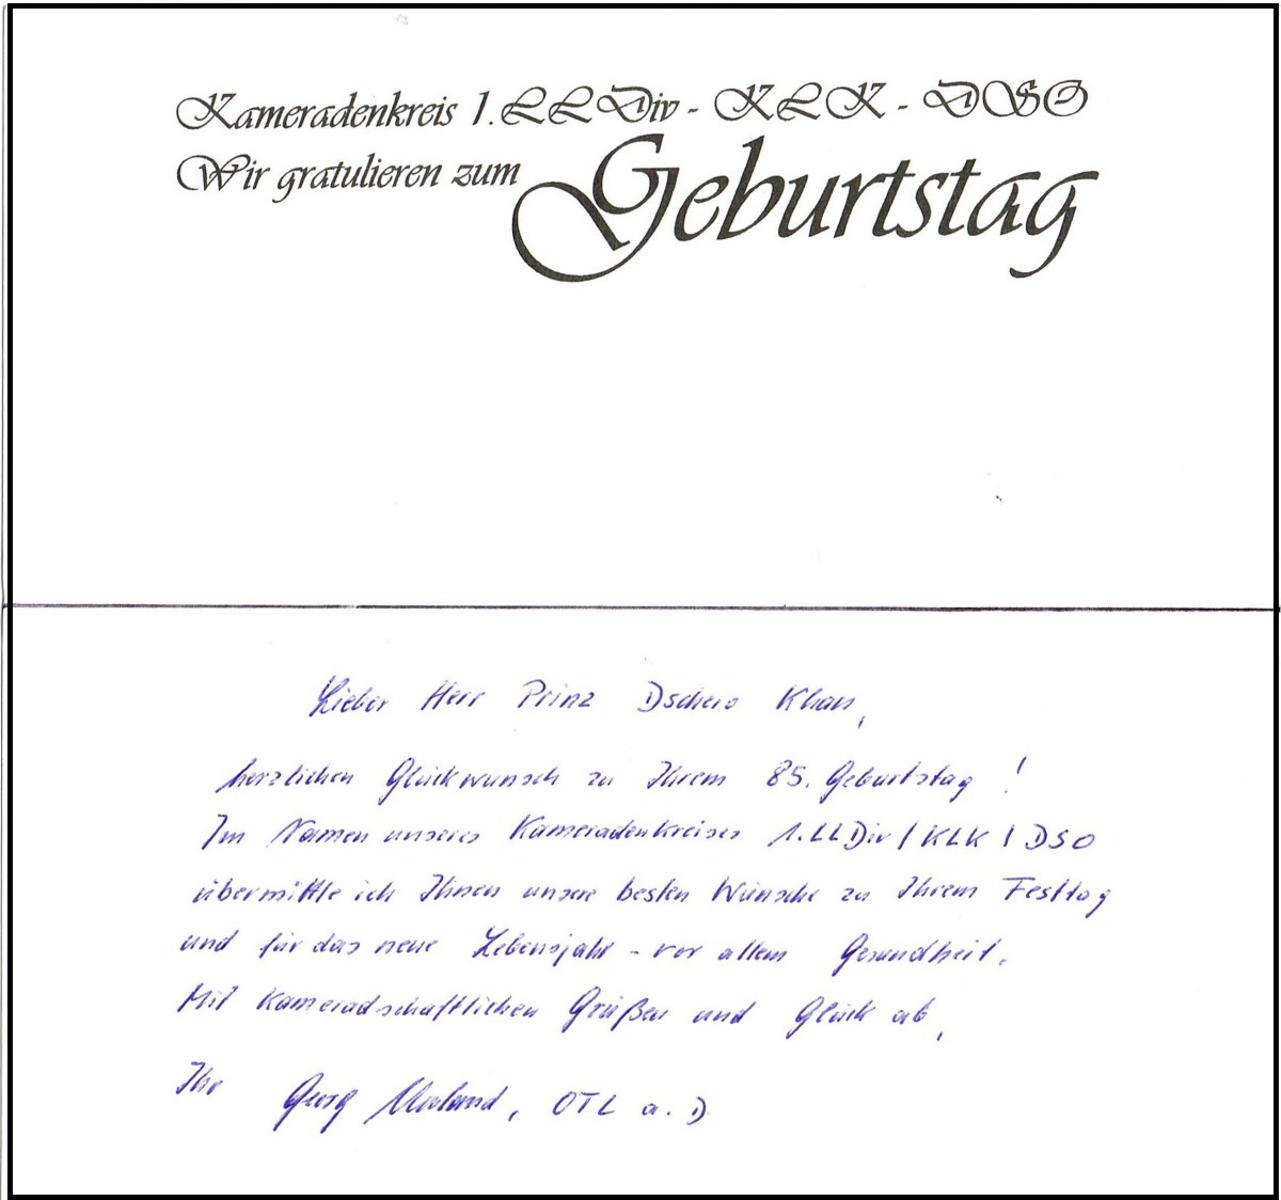 Kameradenkreis 1.LLDiv - KLK - DSO
Wir gratulieren zum Geburtstag
Lieber Herr Prinz Dschero Khan,
herzlichen Glückwunsch zu Ihrem 85. Geburtstag !
Im Namen unseres Kameradenkreises 1.LLDiv / KLK / DSO
übermittle ich Ihnen unsere besten Wünsche zu Ihrem Festtag
und für das neue Lebensjahr - vor allem Gesundheit.
Mit kameradschaftlichen Grüßen und Glück ab,
Ihr Georg , OTL a. D